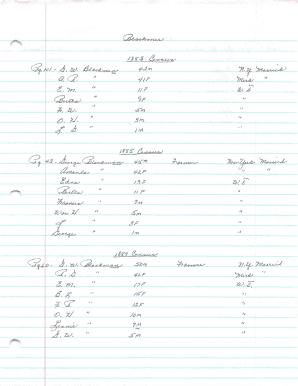 Blackman
1883 Census
Pg. 101 - G. W. Blackman 42m N.Y. Married
A. B. " 41F Mich "
E. M. " 11F D.T.
Bertha " 9F "
F. W. " 5m "
O. H. " 3m "
" 1m "
1885 Census
Pg 43 - George Blackman 45m Farmer New York Married
Amanda " 42F " "
Edna " 13F D.T.
Bertha " 11F "
Francis " 7m "
Wm H " 5m "
" 3F "
George " 1m "
1889 Census
Pg 60 - G. W. Blackman 50m Farmer N.Y. Married
" 42F Mich "
E. M. " 17F D.T.
B. L. " 15F "
" 12F "
O. H. " 10m "
" 7M "
G. W. " 5m "